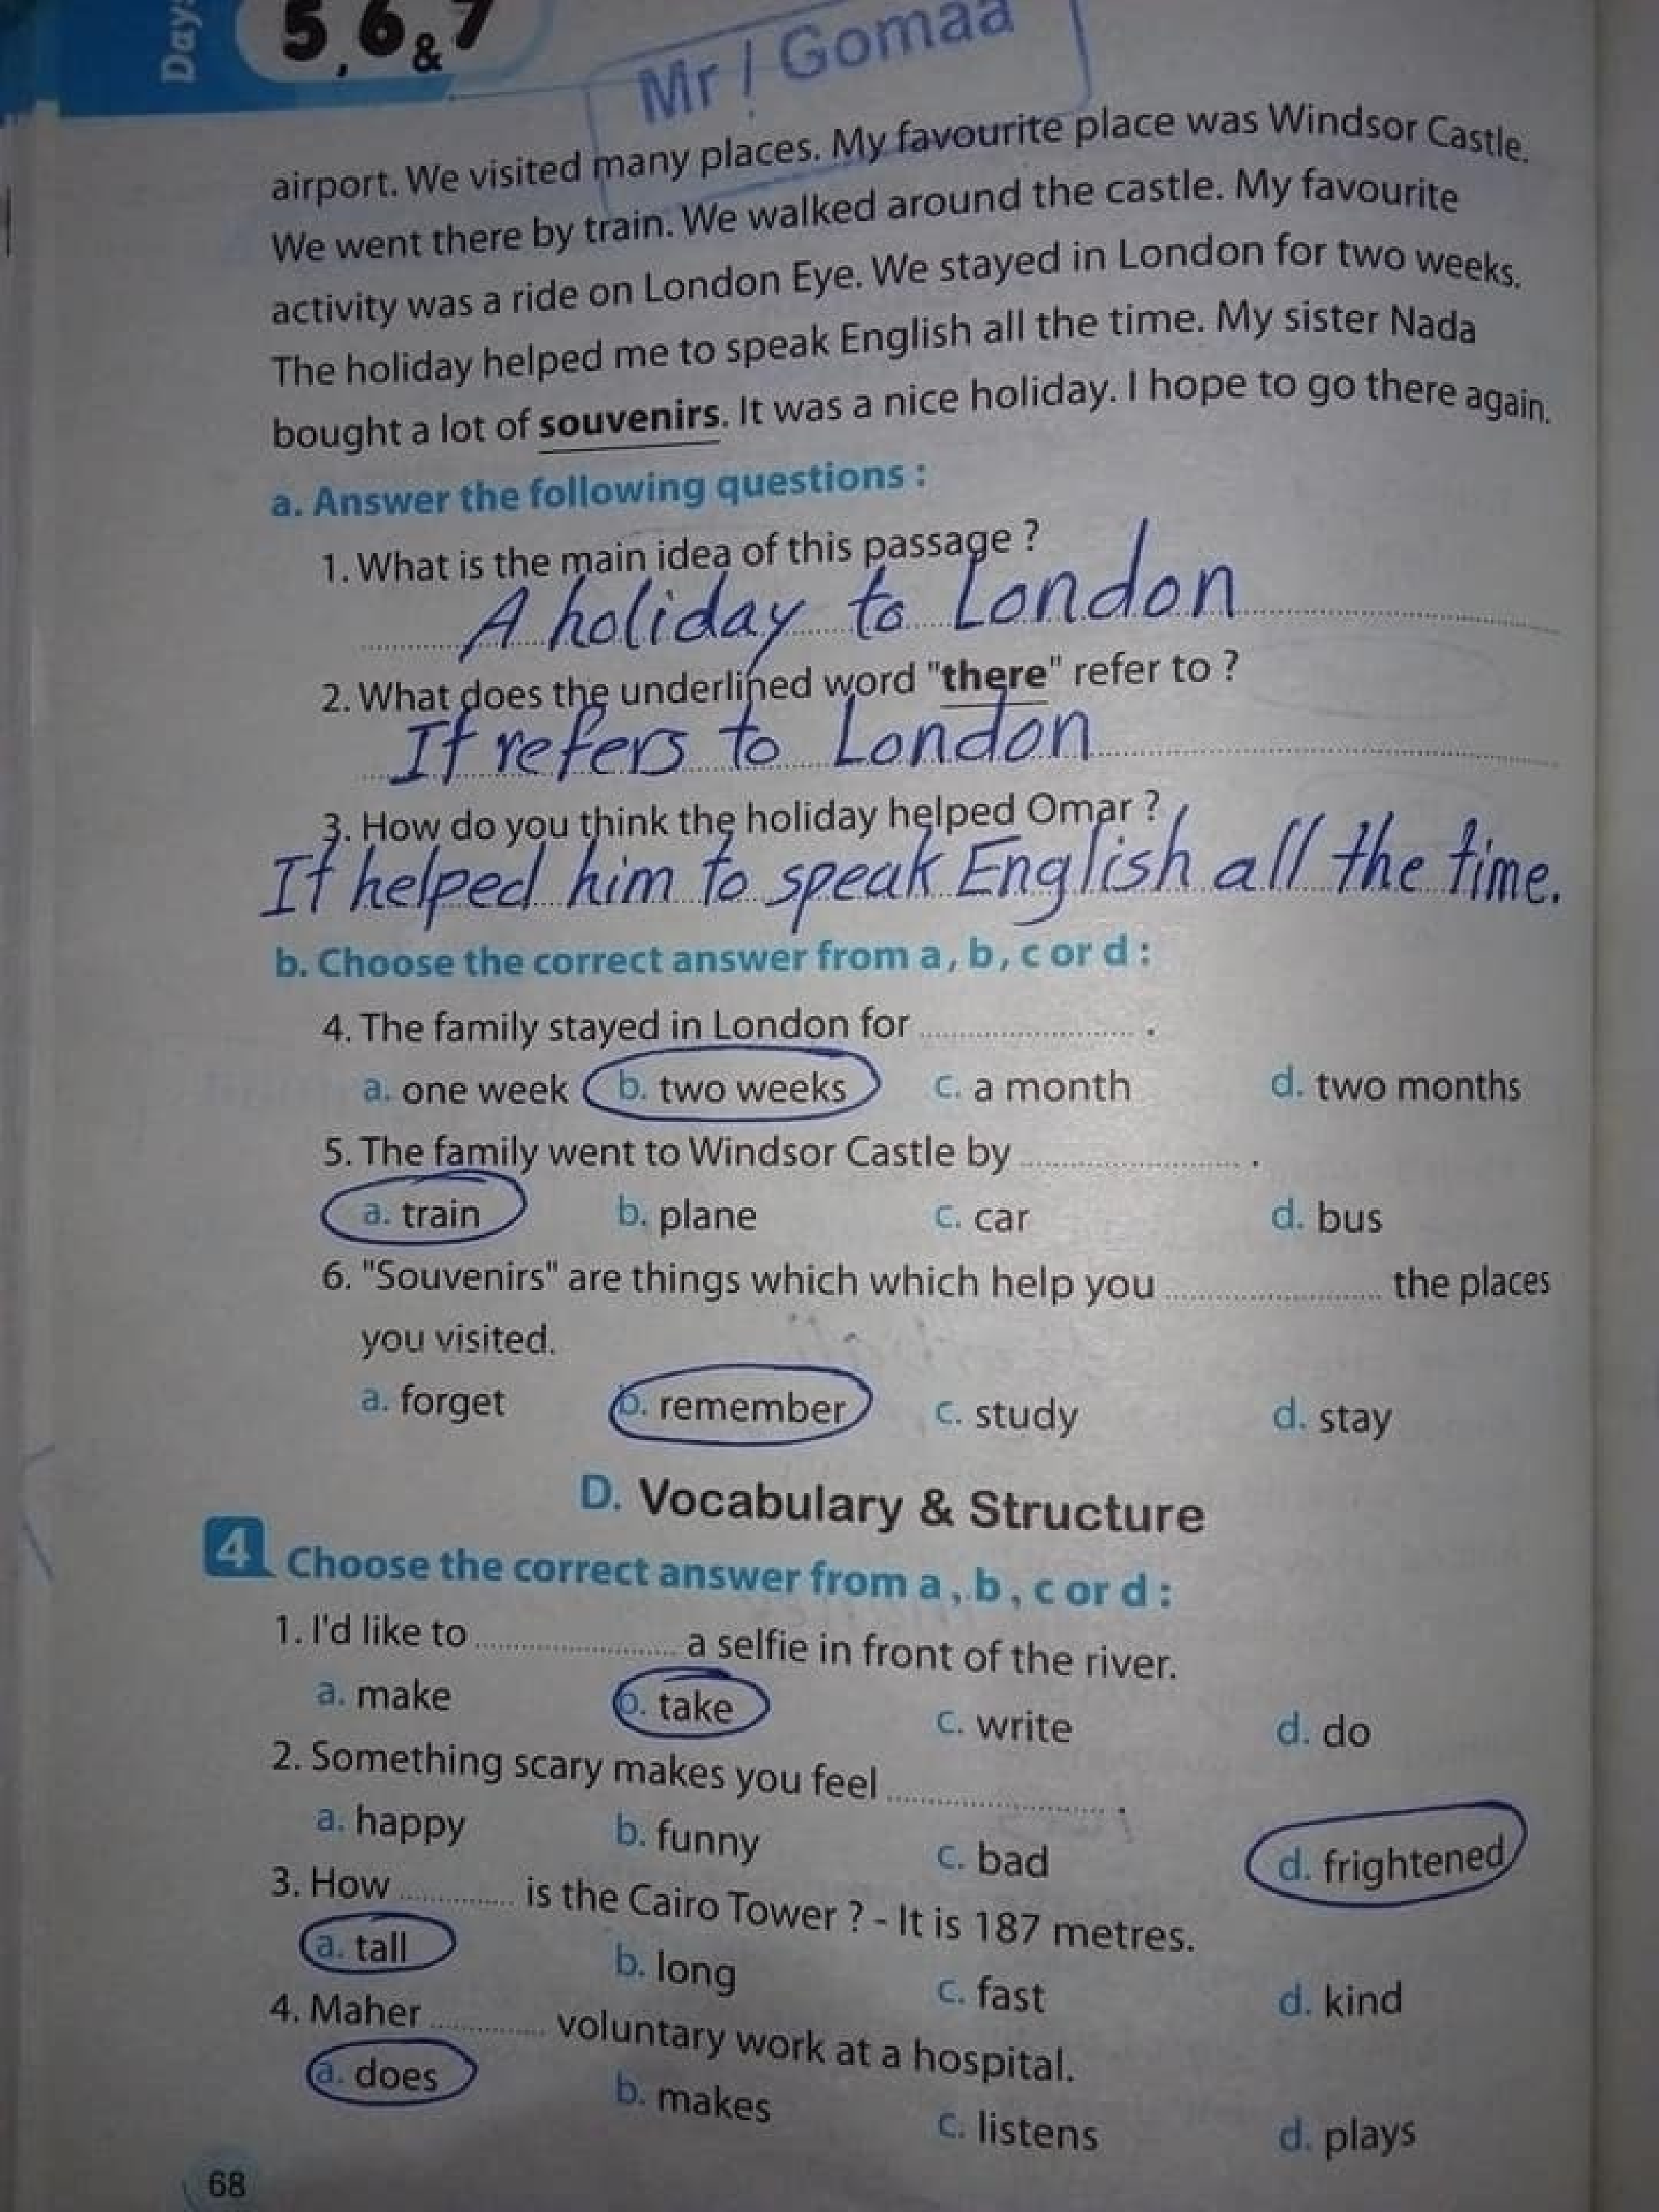 Days
5, 6 & 7
Mr / Gomaa
airport. We visited many places. My favourite place was Windsor Castle.
We went there by train. We walked around the castle. My favourite
activity was a ride on London Eye. We stayed in London for two weeks.
The holiday helped me to speak English all the time. My sister Nada
bought a lot of souvenirs. It was a nice holiday. I hope to go there again.
a. Answer the following questions :
1. What is the main idea of this passage ?
A holiday to London
2. What does the underlined word "there" refer to ?
It refers to London
3. How do you think the holiday helped Omar ?
It helped him to speak English all the time.
b. Choose the correct answer from a, b, c or d :
4. The family stayed in London for .................... .
a. one week b. two weeks c. a month d. two months
5. The family went to Windsor Castle by .................... .
a. train b. plane c. car d. bus
6. "Souvenirs" are things which which help you .................... the places
you visited.
a. forget b. remember c. study d. stay
D. Vocabulary & Structure
4 Choose the correct answer from a, b, c or d :
1. I'd like to .................... a selfie in front of the river.
a. make b. take c. write d. do
2. Something scary makes you feel .................... .
a. happy b. funny c. bad d. frightened
3. How ............ is the Cairo Tower ? - It is 187 metres.
a. tall b. long c. fast d. kind
4. Maher ............ voluntary work at a hospital.
a. does b. makes c. listens d. plays
68